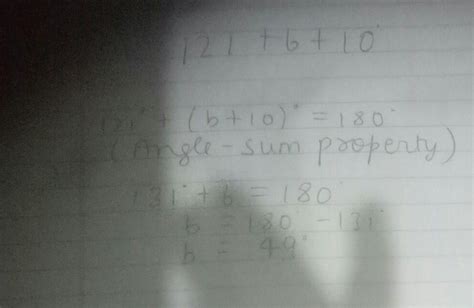 121 + b + 10°
121° + (b+10)° = 180°
(Angle-sum property)
131° + b = 180°
b = 180° - 131°
b = 49°